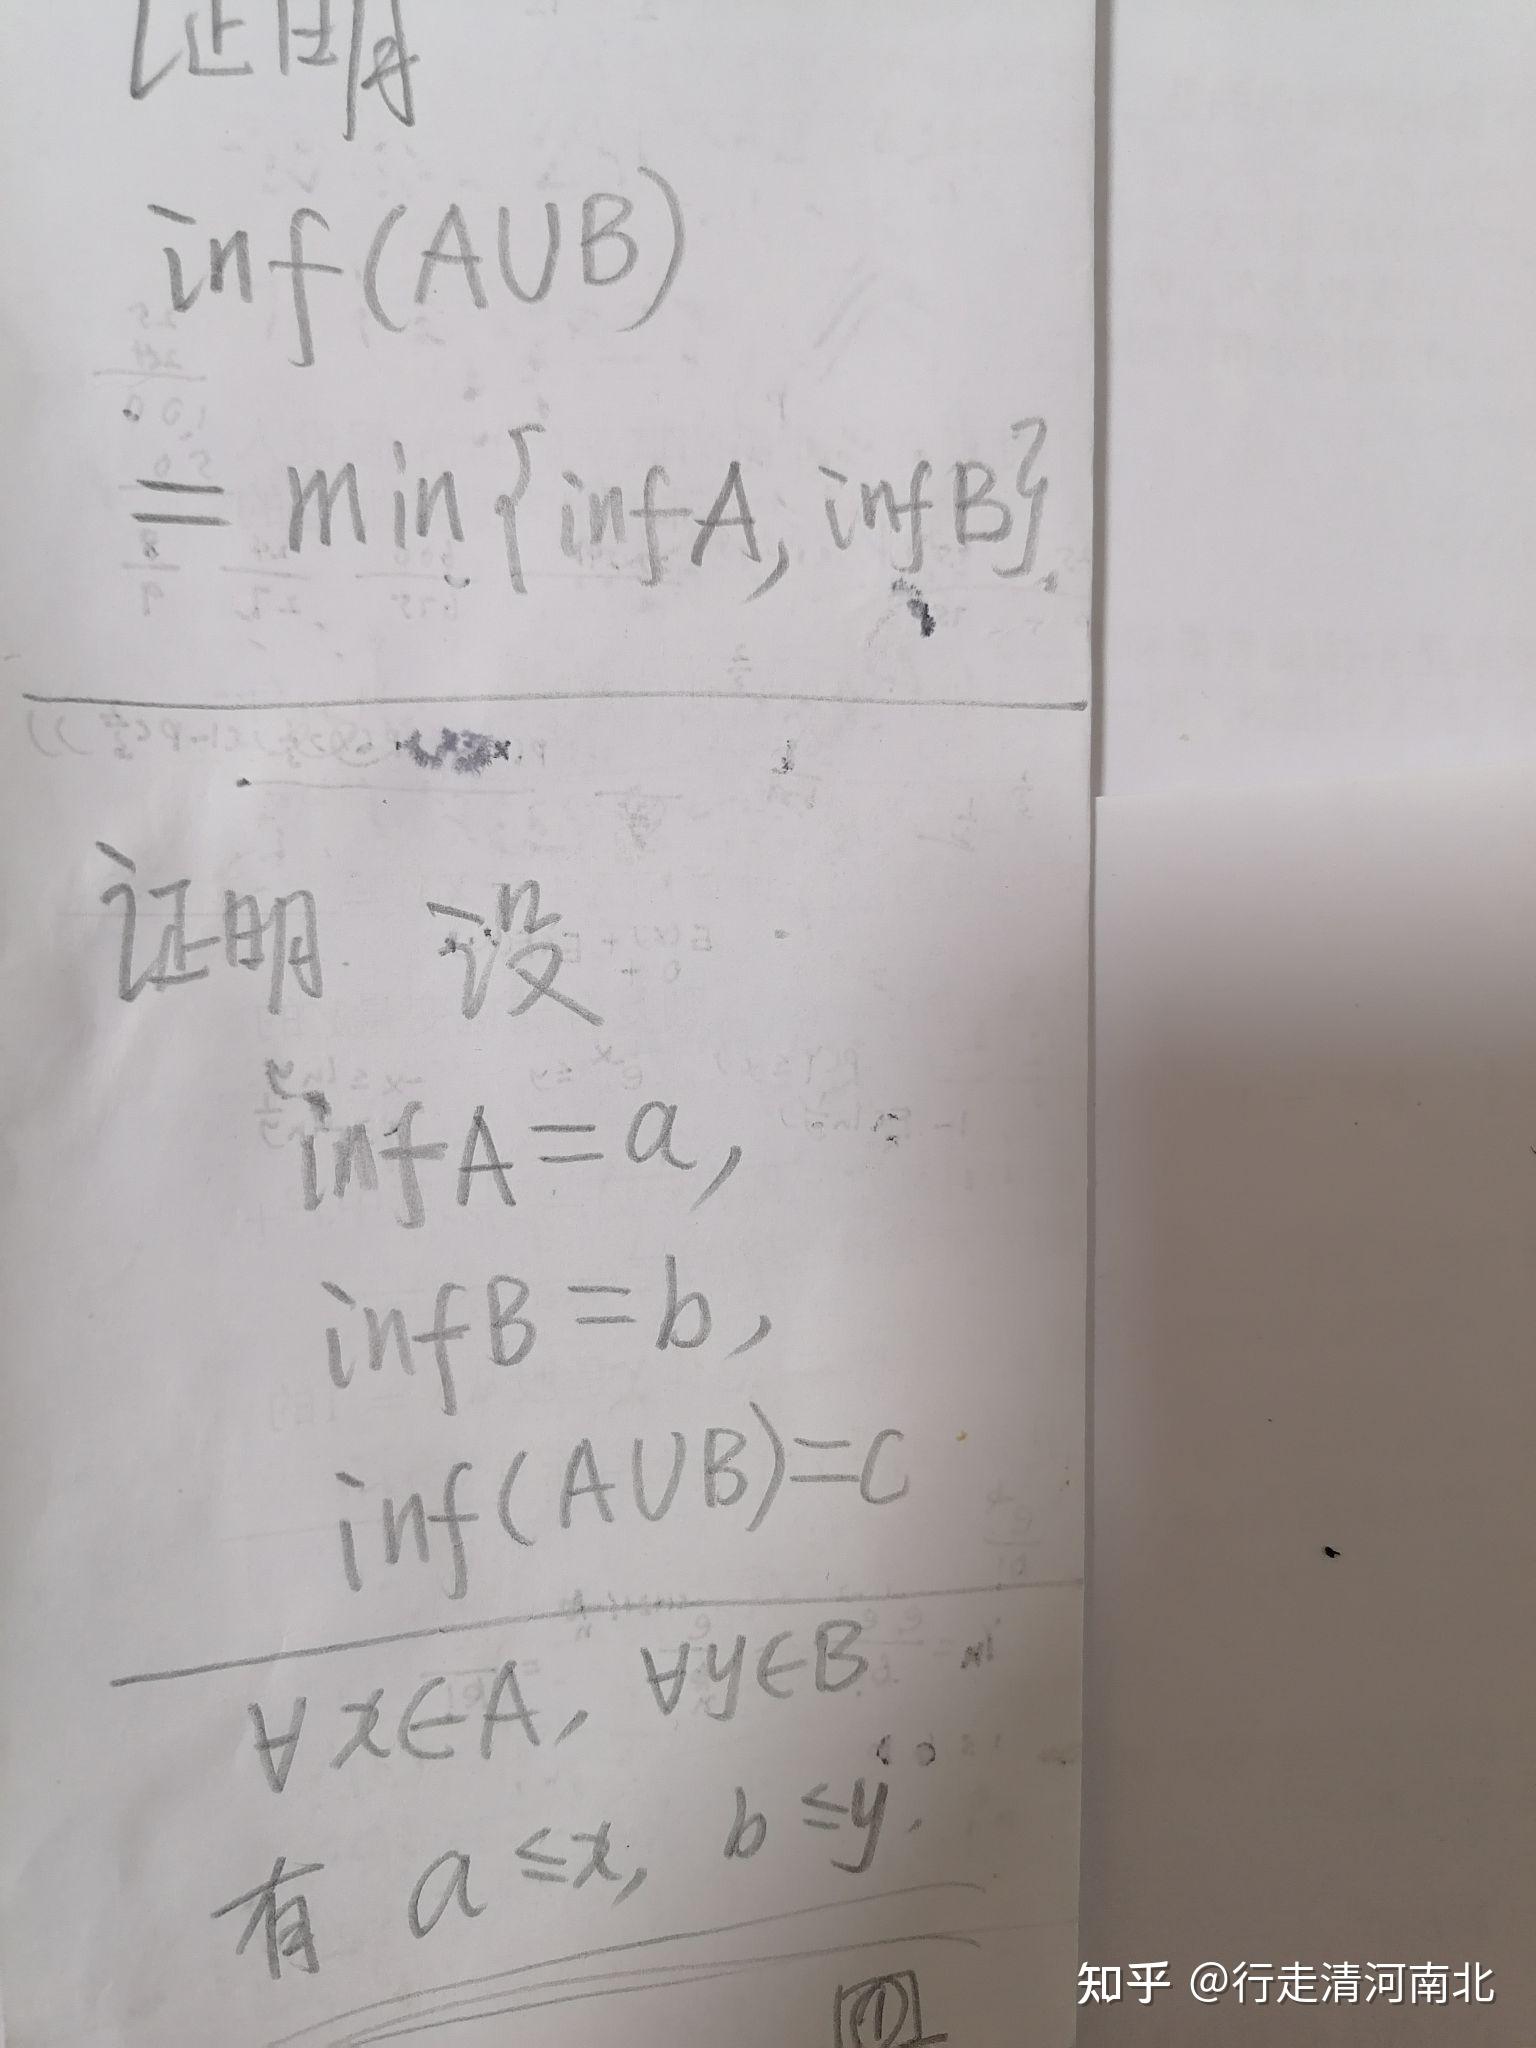 证明
inf(A∪B)
= min{infA, infB}.
证明 设
infA=a,
infB=b,
inf(A∪B)=C
∀x∈A, ∀y∈B
有 a≤x, b≤y.
①
知乎 @行走清河南北